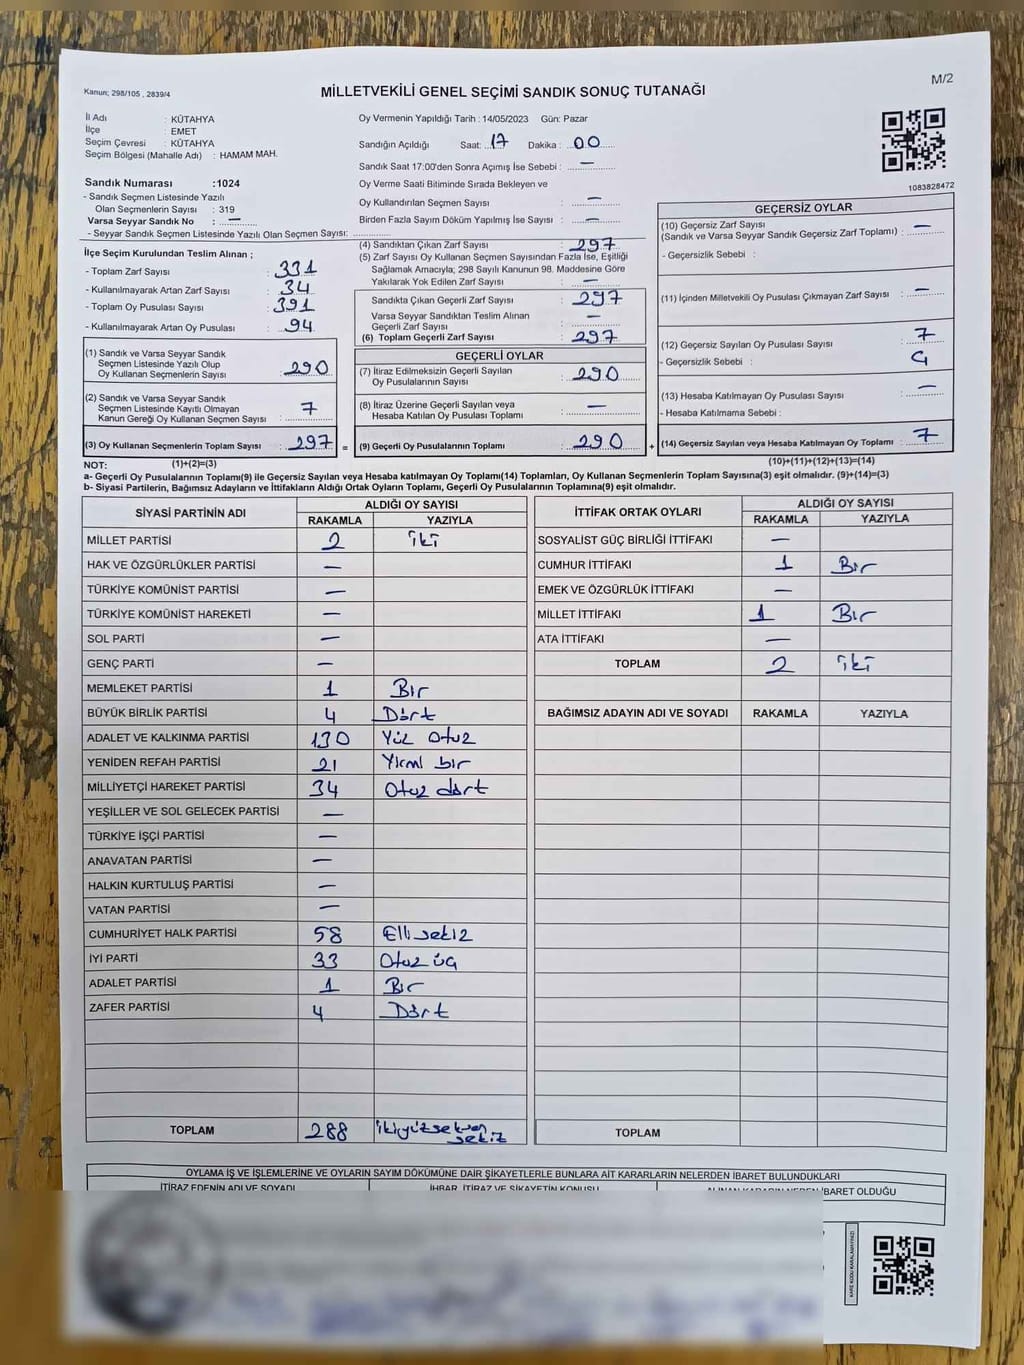 M/2
Kanun; 298/105 , 2839/4
MİLLETVEKİLİ GENEL SEÇİMİ SANDIK SONUÇ TUTANAĞI
İl Adı : KÜTAHYA
İlçe : EMET
Seçim Çevresi : KÜTAHYA
Seçim Bölgesi (Mahalle Adı) : HAMAM MAH.
Sandık Numarası :1024
- Sandık Seçmen Listesinde Yazılı
Olan Seçmenlerin Sayısı : 319
Varsa Seyyar Sandık No : —
- Seyyar Sandık Seçmen Listesinde Yazılı Olan Seçmen Sayısı:
Oy Vermenin Yapıldığı Tarih : 14/05/2023 Gün: Pazar
Sandığın Açıldığı Saat: 17 Dakika : 00
Sandık Saat 17:00'den Sonra Açımış İse Sebebi : —
Oy Verme Saati Bitiminde Sırada Bekleyen ve
Oy Kullandırılan Seçmen Sayısı : —
Birden Fazla Sayım Döküm Yapılmış İse Sayısı : —
1083828472
İlçe Seçim Kurulundan Teslim Alınan ;
- Toplam Zarf Sayısı : 331
- Kullanılmayarak Artan Zarf Sayısı : 34
- Toplam Oy Pusulası Sayısı : 391
- Kullanılmayarak Artan Oy Pusulası : 94
(1) Sandık ve Varsa Seyyar Sandık
Seçmen Listesinde Yazılı Olup
Oy Kullanan Seçmenlerin Sayısı : 290
(2) Sandık ve Varsa Seyyar Sandık
Seçmen Listesinde Kayıtlı Olmayan
Kanun Gereği Oy Kullanan Seçmen Sayısı : 7
(3) Oy Kullanan Seçmenlerin Toplam Sayısı : 297 =
(4) Sandıktan Çıkan Zarf Sayısı : 297
(5) Zarf Sayısı Oy Kullanan Seçmen Sayısından Fazla İse, Eşitliği
Sağlamak Amacıyla; 298 Sayılı Kanunun 98. Maddesine Göre
Yakılarak Yok Edilen Zarf Sayısı : —
Sandıkta Çıkan Geçerli Zarf Sayısı : 297
Varsa Seyyar Sandıktan Teslim Alınan
Geçerli Zarf Sayısı : —
(6) Toplam Geçerli Zarf Sayısı : 297
GEÇERLİ OYLAR
(7) İtiraz Edilmeksizin Geçerli Sayılan
Oy Pusulalarının Sayısı : 290
(8) İtiraz Üzerine Geçerli Sayılan veya
Hesaba Katılan Oy Pusulaları Toplamı : —
(9) Geçerli Oy Pusulalarının Toplamı : 290 +
GEÇERSİZ OYLAR
(10) Geçersiz Zarf Sayısı
(Sandık ve Varsa Seyyar Sandık Geçersiz Zarf Toplamı) : —
- Geçersizlik Sebebi :
(11) İçinden Milletvekili Oy Pusulası Çıkmayan Zarf Sayısı : —
(12) Geçersiz Sayılan Oy Pusulası Sayısı : 7
- Geçersizlik Sebebi :
(13) Hesaba Katılmayan Oy Pusulası Sayısı : —
- Hesaba Katılmama Sebebi :
(14) Geçersiz Sayılan veya Hesaba Katılmayan Oy Toplamı : 7
NOT: (1)+(2)=(3)
(10)+(11)+(12)+(13)=(14)
a- Geçerli Oy Pusulalarının Toplamı(9) ile Geçersiz Sayılan veya Hesaba katılmayan Oy Toplamı(14) Toplamları, Oy Kullanan Seçmenlerin Toplam Sayısına(3) eşit olmalıdır. (9)+(14)=(3)
b- Siyasi Partilerin, Bağımsız Adayların ve İttifakların Aldığı Ortak Oyların Toplamı, Geçerli Oy Pusulalarının Toplamına(9) eşit olmalıdır.
SİYASİ PARTİNİN ADI ALDIĞI OY SAYISI
RAKAMLA YAZIYLA
MİLLET PARTİSİ 2 iki
HAK VE ÖZGÜRLÜKLER PARTİSİ —
TÜRKİYE KOMÜNİST PARTİSİ —
TÜRKİYE KOMÜNİST HAREKETİ —
SOL PARTİ —
GENÇ PARTİ —
MEMLEKET PARTİSİ 1 Bir
BÜYÜK BİRLİK PARTİSİ 4 Dört
ADALET VE KALKINMA PARTİSİ 130 Yüz Otuz
YENİDEN REFAH PARTİSİ 21 Yirmi bir
MİLLİYETÇİ HAREKET PARTİSİ 34 Otuz dört
YEŞİLLER VE SOL GELECEK PARTİSİ —
TÜRKİYE İŞÇİ PARTİSİ —
ANAVATAN PARTİSİ —
HALKIN KURTULUŞ PARTİSİ —
VATAN PARTİSİ —
CUMHURİYET HALK PARTİSİ 58 Elli sekiz
İYİ PARTİ 33 Otuz üç
ADALET PARTİSİ 1 Bir
ZAFER PARTİSİ 4 Dört
TOPLAM 288 ikiyüzseksen
sekiz
İTTİFAK ORTAK OYLARI ALDIĞI OY SAYISI
RAKAMLA YAZIYLA
SOSYALİST GÜÇ BİRLİĞİ İTTİFAKI —
CUMHUR İTTİFAKI 1 Bir
EMEK VE ÖZGÜRLÜK İTTİFAKI —
MİLLET İTTİFAKI 1 Bir
ATA İTTİFAKI —
TOPLAM 2 iki
BAĞIMSIZ ADAYIN ADI VE SOYADI RAKAMLA YAZIYLA
TOPLAM
OYLAMA İŞ VE İŞLEMLERİNE VE OYLARIN SAYIM DÖKÜMÜNE DAİR ŞİKAYETLERLE BUNLARA AİT KARARLARIN NELERDEN İBARET BULUNDUKLARI
İTİRAZ EDENİN ADI VE SOYADI İHBAR, İTİRAZ VE ŞİKAYETİN KONUSU ALINAN KARARIN NEDEN İBARET OLDUĞU